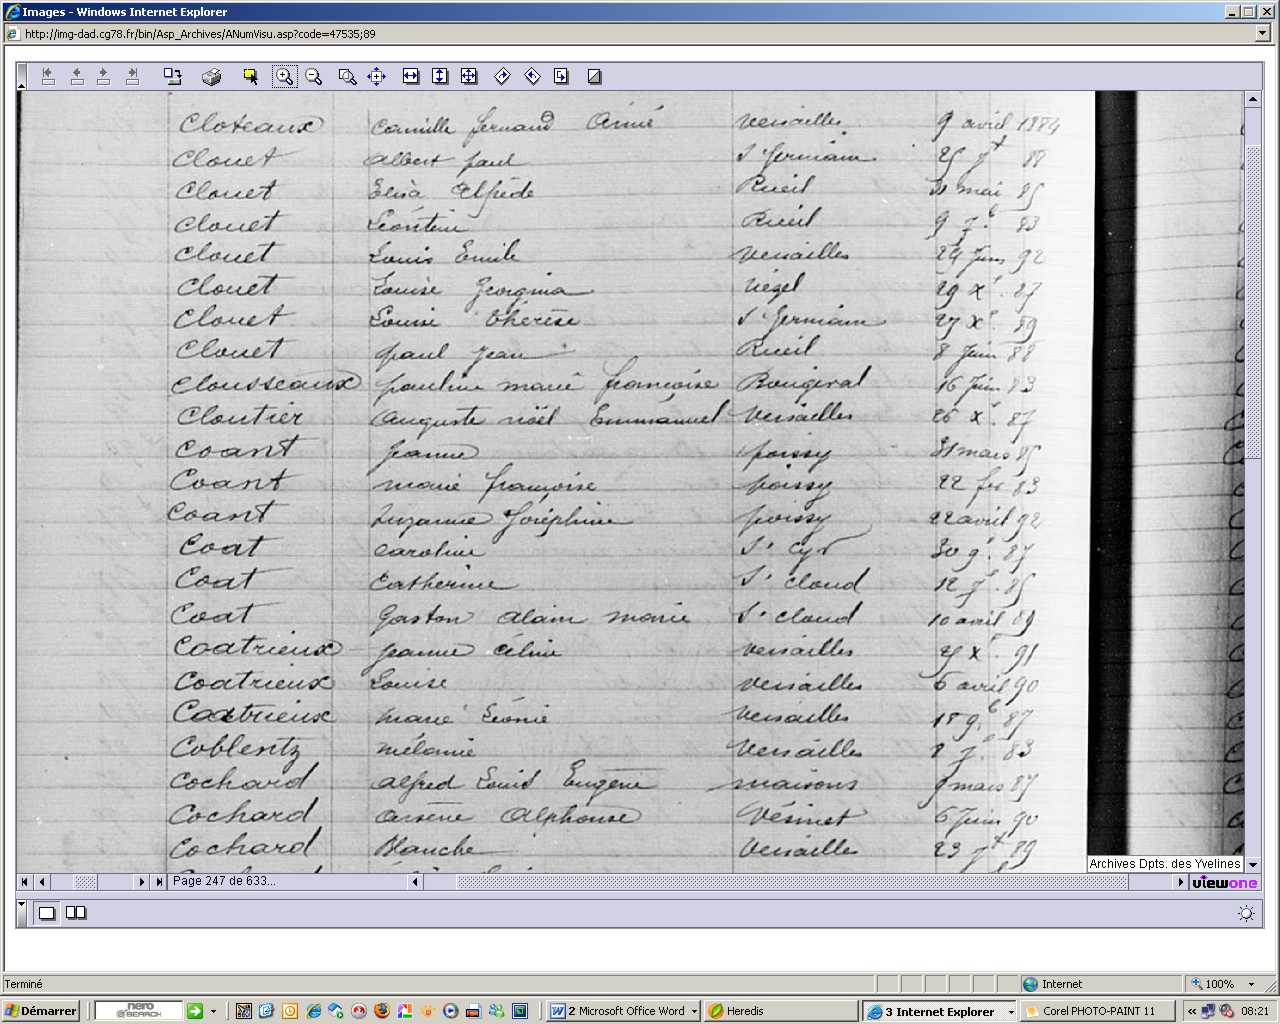 Images - Windows Internet Explorer
http://img-dad.cg78.fr/bin/Asp_Archives/ANumVisu.asp?code=47535;89
Cloteaux Camille Fernand Aimé Versailles 9 avril 1884
Clouet Albert Paul St Germain 88
Clouet Elisa Alfrède Rueil 31 mai 85
Clouet Léontine Rueil 9 83
Clouet Louis Emile Versailles 24 Juin 92
Clouet Louise Georgina 29 Xe 87
Clouet Louise Thérèse St Germain 27 Xe 89
Clouet Paul Jean Rueil 8 Juin 88
Clousseaux Pauline Marie Françoise Bougival 16 Juin 83
Cloutier Auguste Noël Emmanuel Versailles 26 Xe 87
Coant Jeanne Poissy 31 mars 85
Coant Marie Françoise Poissy 22 fer 83
Coant Suzanne Joséphine Poissy 22 avril 92
Coat Caroline St Cyr 30 9e 87
Coat Catherine St Cloud 12 85
Coat Gaston Alain Marie St Cloud 10 avril 89
Coatrieux Jeanne Céline Versailles 25 Xe 91
Coatrieux Louise Versailles 6 avril 90
Coatrieux Marie Léonie Versailles 18 9e 87
Coblentz Mélanie Versailles 8 83
Cochard Alfred Louis Eugène Maisons 9 mars 87
Cochard Arsène Alphonse Vésinet 6 Juin 90
Cochard Blanche Versailles 23 89
Archives Dpts. des Yvelines
Page 247 de 633...
viewone
Terminé
Internet
100%
Démarrer
nero
SEARCH
2 Microsoft Office Word
Heredis
3 Internet Explorer
Corel PHOTO-PAINT 11
08:21